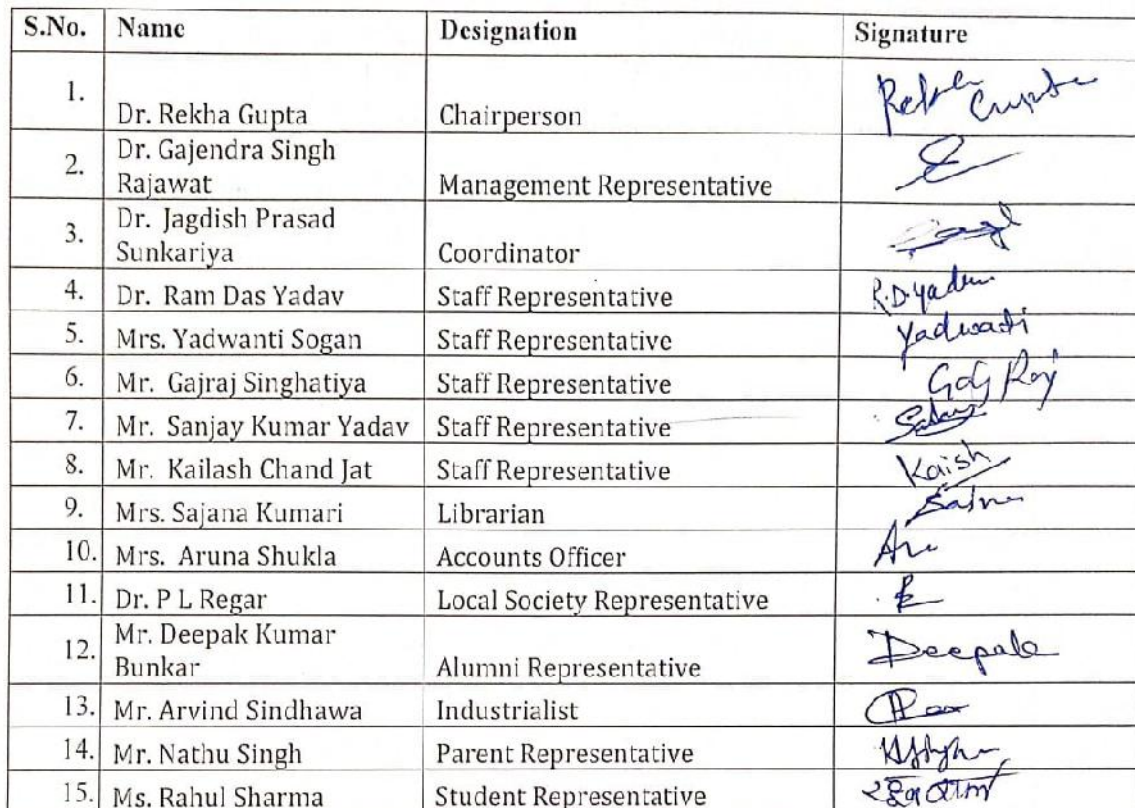 S.No. Name Designation Signature
1. Dr. Rekha Gupta Chairperson Rekha Gupta
2. Dr. Gajendra Singh
Rajawat Management Representative
3. Dr. Jagdish Prasad
Sunkariya Coordinator
4. Dr. Ram Das Yadav Staff Representative R.D. Yadav
5. Mrs. Yadwanti Sogan Staff Representative Yadwanti
6. Mr. Gajraj Singhatiya Staff Representative Gaj Raj
7. Mr. Sanjay Kumar Yadav Staff Representative
8. Mr. Kailash Chand Jat Staff Representative Kaish
9. Mrs. Sajana Kumari Librarian
10. Mrs. Aruna Shukla Accounts Officer
11. Dr. P L Regar Local Society Representative
12. Mr. Deepak Kumar
Bunkar Alumni Representative Deepak
13. Mr. Arvind Sindhawa Industrialist
14. Mr. Nathu Singh Parent Representative
15. Ms. Rahul Sharma Student Representative